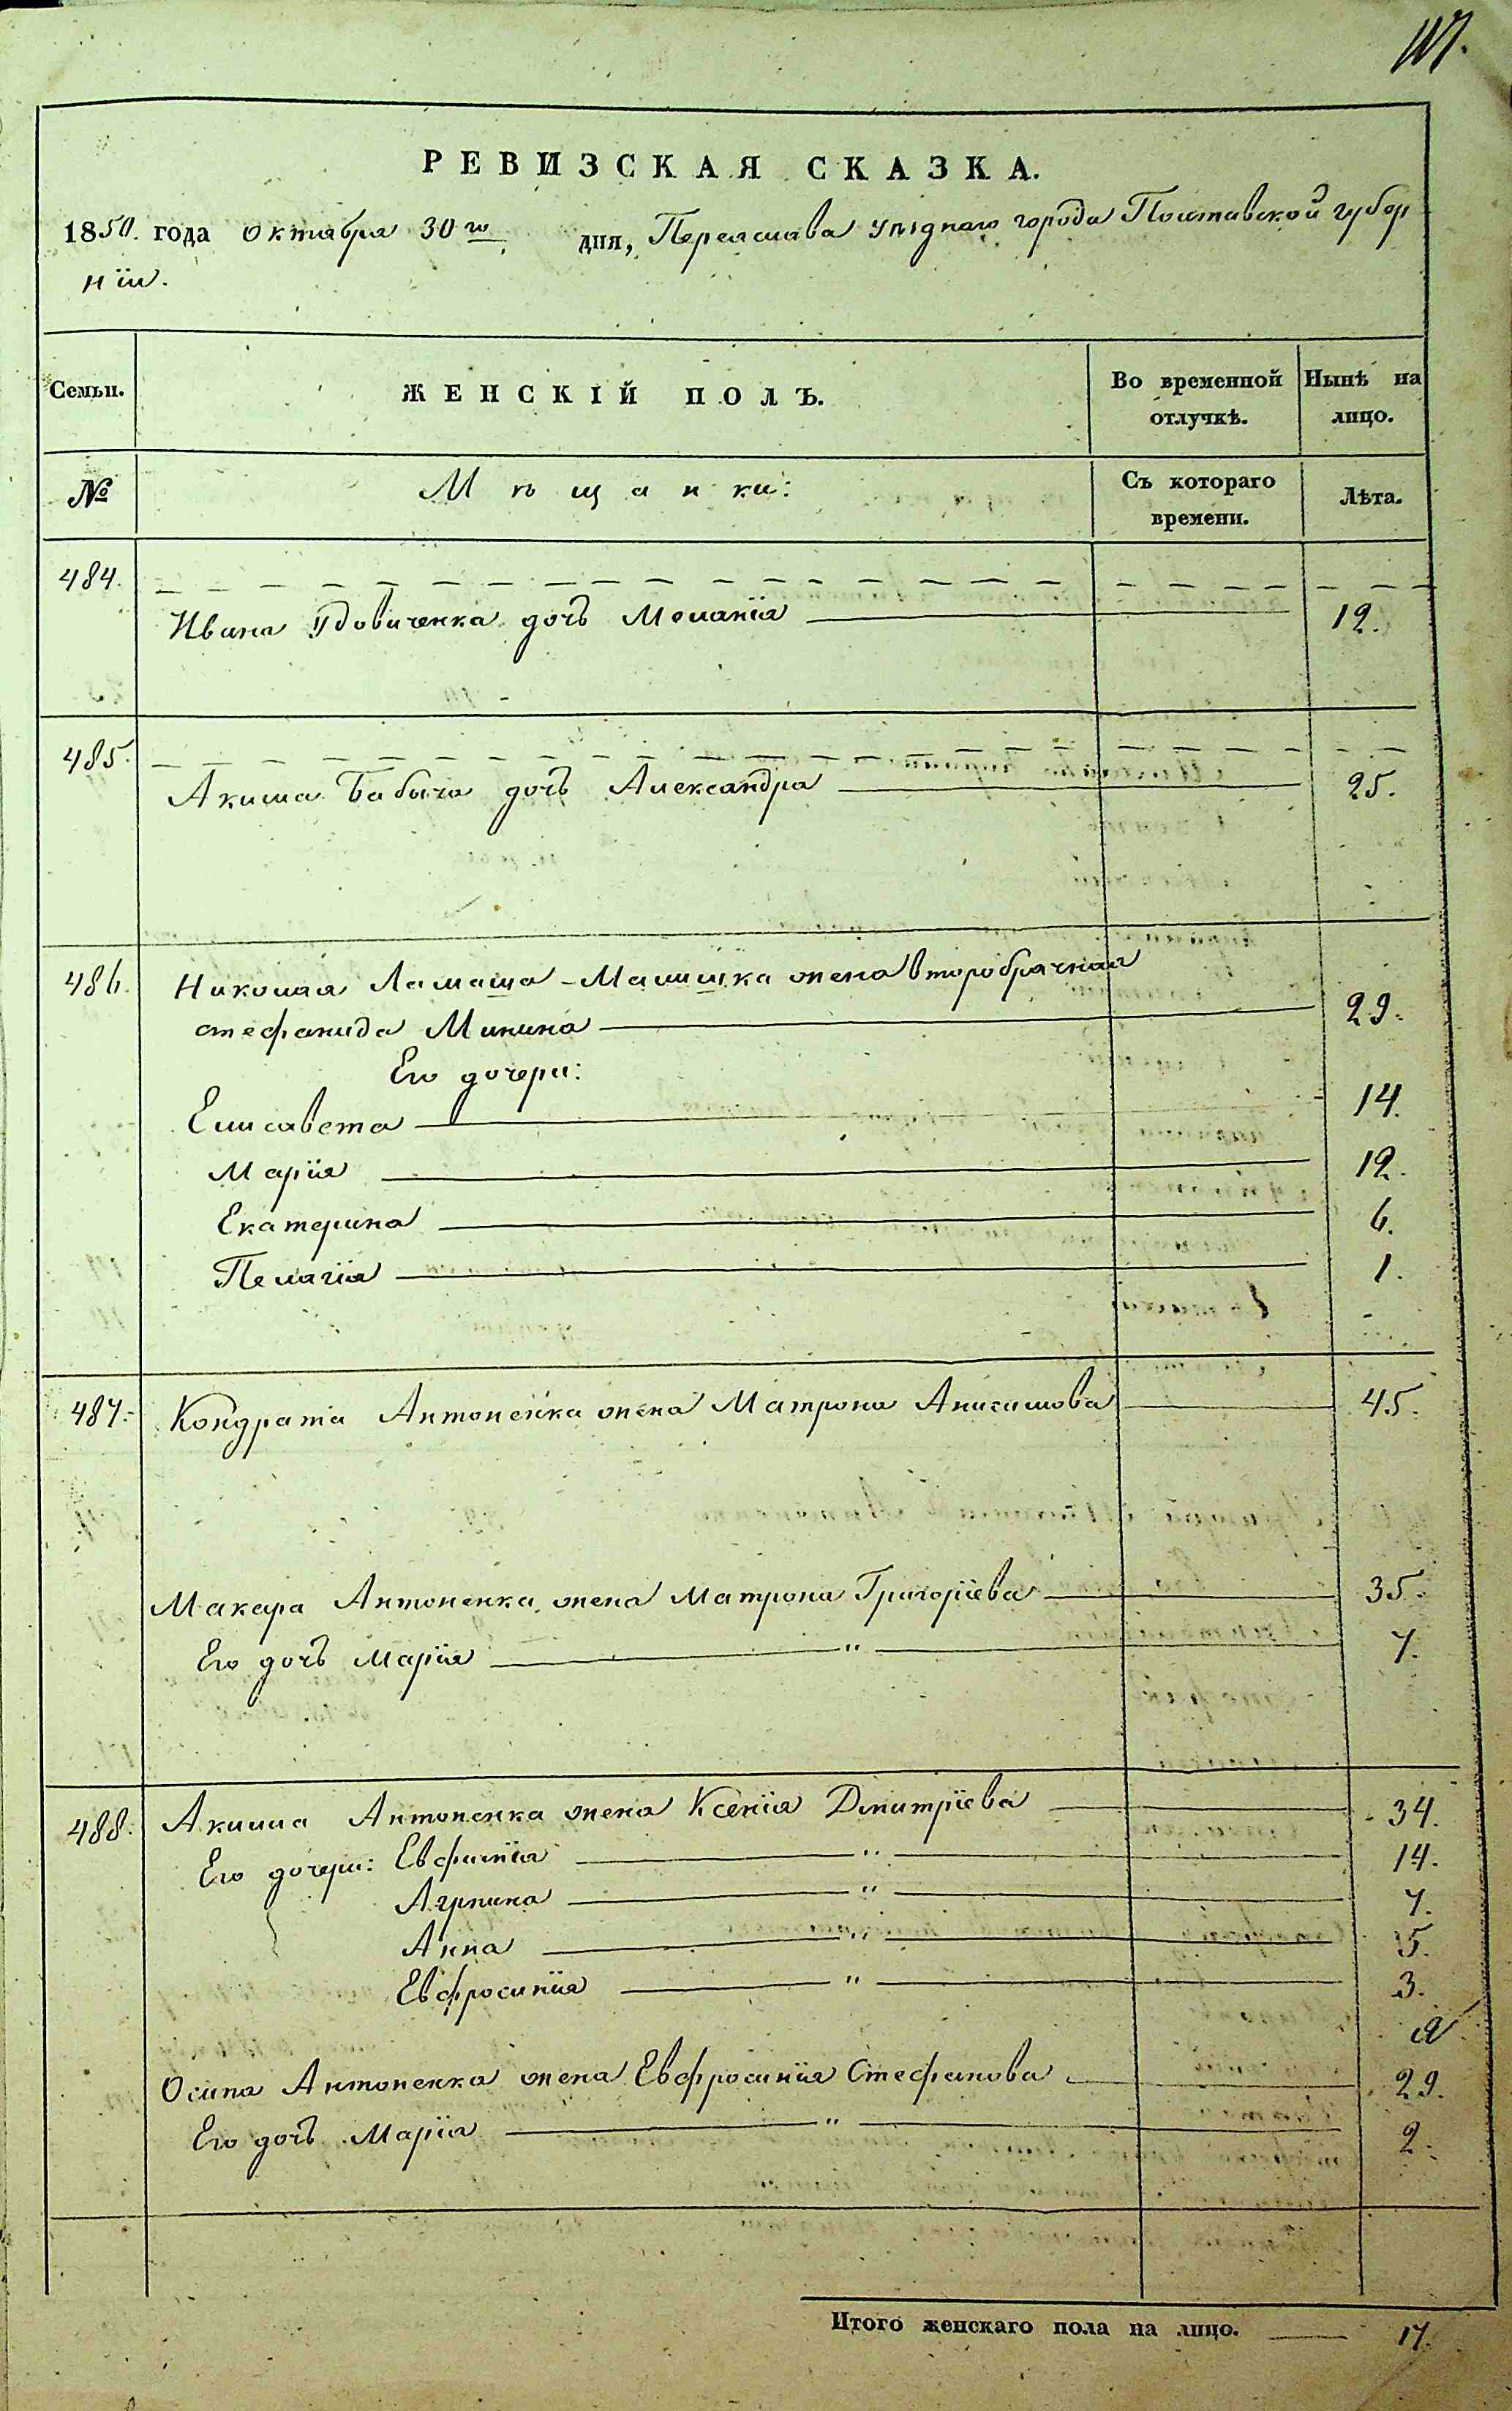 117.
РЕВИЗСКАЯ СКАЗКА.
1850. года Октября 30го дня, Переяслава уѣзднаго города Полтавской губер
нїи.
Семьи. ЖЕНСКІЙ ПОЛЪ. Во временной отлучкѣ. Нынѣ на лицо.
№ Мѣщанки: Съ котораго времени. Лѣта.
484.
Ивана Удовиченка дочь Меланїя 12.
485.
Акима Бабича дочь Александра 25.
486. Николая Ламаша-Малишка жена второбрачная
Стефанида Минина 29.
Его дочери:
Елисавета 14.
Марїя 12.
Екатерина 6.
Пелагїя 1.
487. Кондрата Антоненка жена Матрона Анисимова 45.
Макара Антоненка жена Матрона Григорїева 35.
Его дочь Марїя " 7.
488. Акима Антоненка жена Ксенїя Дмитрїева 34.
Его дочери: Евфимїя " 14.
Агрипина " 7.
Анна " 5.
Евфросинїя " 3.
Осипа Антоненка жена Евфросинїя Стефанова 29.
Его дочь Марїя " 2.
Итого женскаго пола на лицо. 17.